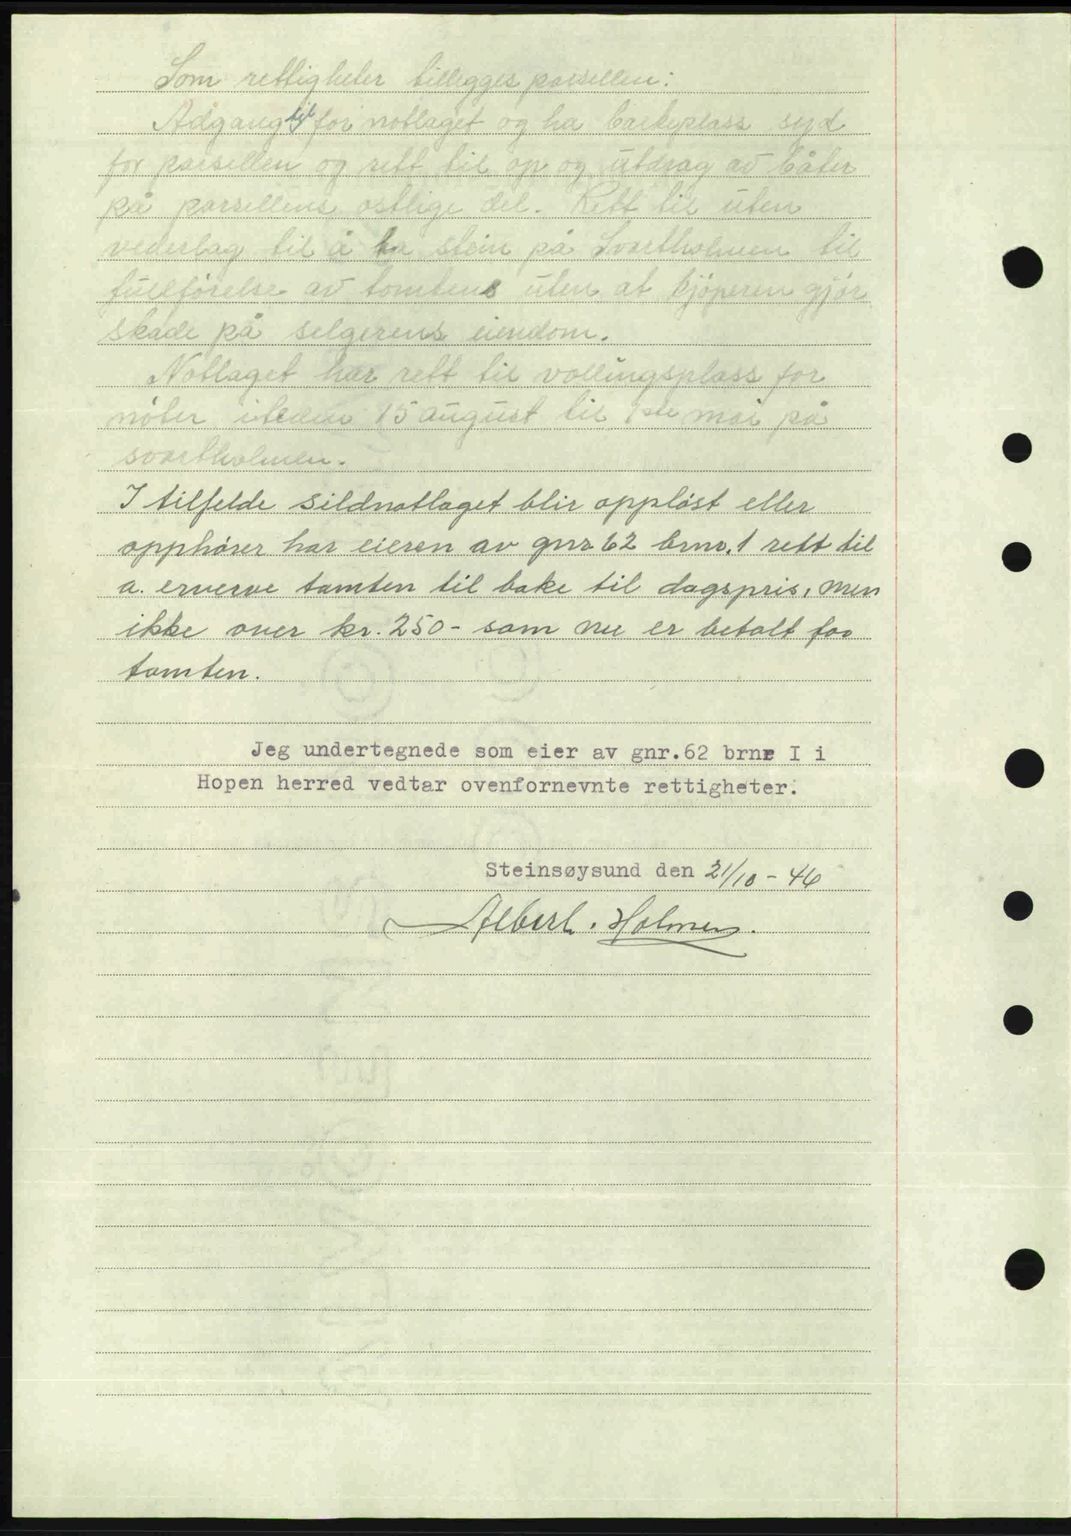 Som rettigheter tillegges parsellen:
Adgang til for notlaget og ha barkeplass syd
for parsellen og rett til op og utdrag av båter
på parsellens østlige del. Rett til uten
vederlag til å ta stein på Svartholmen til
fullførelse av tomtens uten at kjøperen gjør
skade på selgerens eiendom.
Notlaget har rett til vollingsplass for
nøter i tiden 15 august til 1ste mai på
svartholmen.
I tilfelde sildnotlaget blir oppløst eller
opphører har eieren av gnr 62 brnr. 1 rett til
a. erverve tomten til bake til dagspris, men
ikke over kr. 250- som nu er betalt for
tomten.
Jeg undertegnede som eier av gnr.62 brnr I i
Hopen herred vedtar ovenfornevnte rettigheter.
Steinsøysund den 21/10-46
Albert. Holmen.